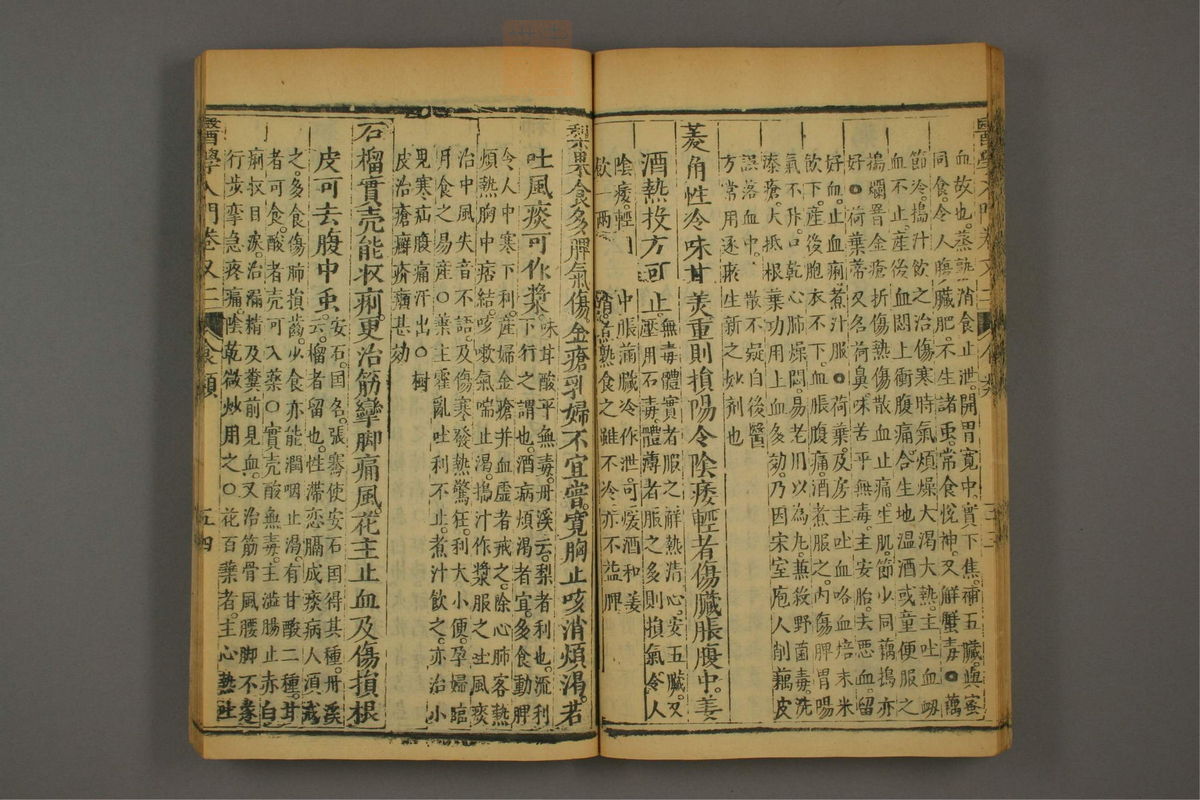 血故也蒸熟消食止泄開胃寬中實下焦補五臟與蜜
同食令人腹臟肥不生諸虫常食悅神又解蟹毒○藕
節冷搗汁飲之治傷寒時氣煩燥大渴大熱主吐血衂
血不止產後血悶上衝腹痛合生地溫酒或童便服之
搗爛罯金瘡折傷熱傷散血止痛生肌節少同藕搗亦
好○荷葉蒂又名荷鼻味苦平無毒主安胎去惡血留
好血止血痢煮汁服○荷葉及房主吐血咯血焙末米
飲下產後胞衣不下血脹腹痛酒煮服之內傷脾胃陽
氣不升口乾心肺燥悶易老用以為丸兼殺野菌毒洗
㾦瘡大抵根葉功用上血多効乃因宋室庖人削藕皮
誤落血中散不凝自後醫
方常用逐瘀生新之妙劑也
菱角性冷味甘美重則損陽令陰痿輕者傷臟脹腹中姜
酒熱投方可止無毒體實者服之解熱清心安五臟又
壓用石毒體薄者服之多則損氣令人
陰痿輕則中脹滿臟冷作泄可煖酒和姜
飲一兩 消煮熟食之雖不冷亦不益脾
梨果食多脾氣傷金瘡乳婦不宜嘗寬胸止咳消煩渴若
吐風痰可作漿味甘酸平無毒丹溪云梨者利也流利
下行之謂也酒病煩渴者宜多食動脾
令人中寒下利產婦金瘡并血虛者戒之除心肺客熱
煩熱胸中痞結咳嗽氣喘止渴搗汁作漿服之吐風痰
治中風失音不語及傷寒發熱驚狂利大小便孕婦臨
月食之易產○葉主霍亂吐利不止煮汁飲之亦治小
兒寒疝腹痛汗出○樹
皮治瘡癬疥癩甚効
石榴實壳能收痢更治筋攣脚痛風花主止血及傷損根
皮可去腹中虫安石国名張騫使安石国得其種丹溪
云榴者留也性滯恋膈成痰病人須戒
之多食傷肺損齒少食亦能潤咽止渴有甘酸二種甘
者可食酸者壳可入藥○實壳酸無毒主澁腸止赤白
痢收目淚治漏精及糞前見血又治筋骨風腰脚不遂
行步攣急疼痛陰乾微炒用之○花百藥者主心熱吐
醫學入門卷又二 食類 五四